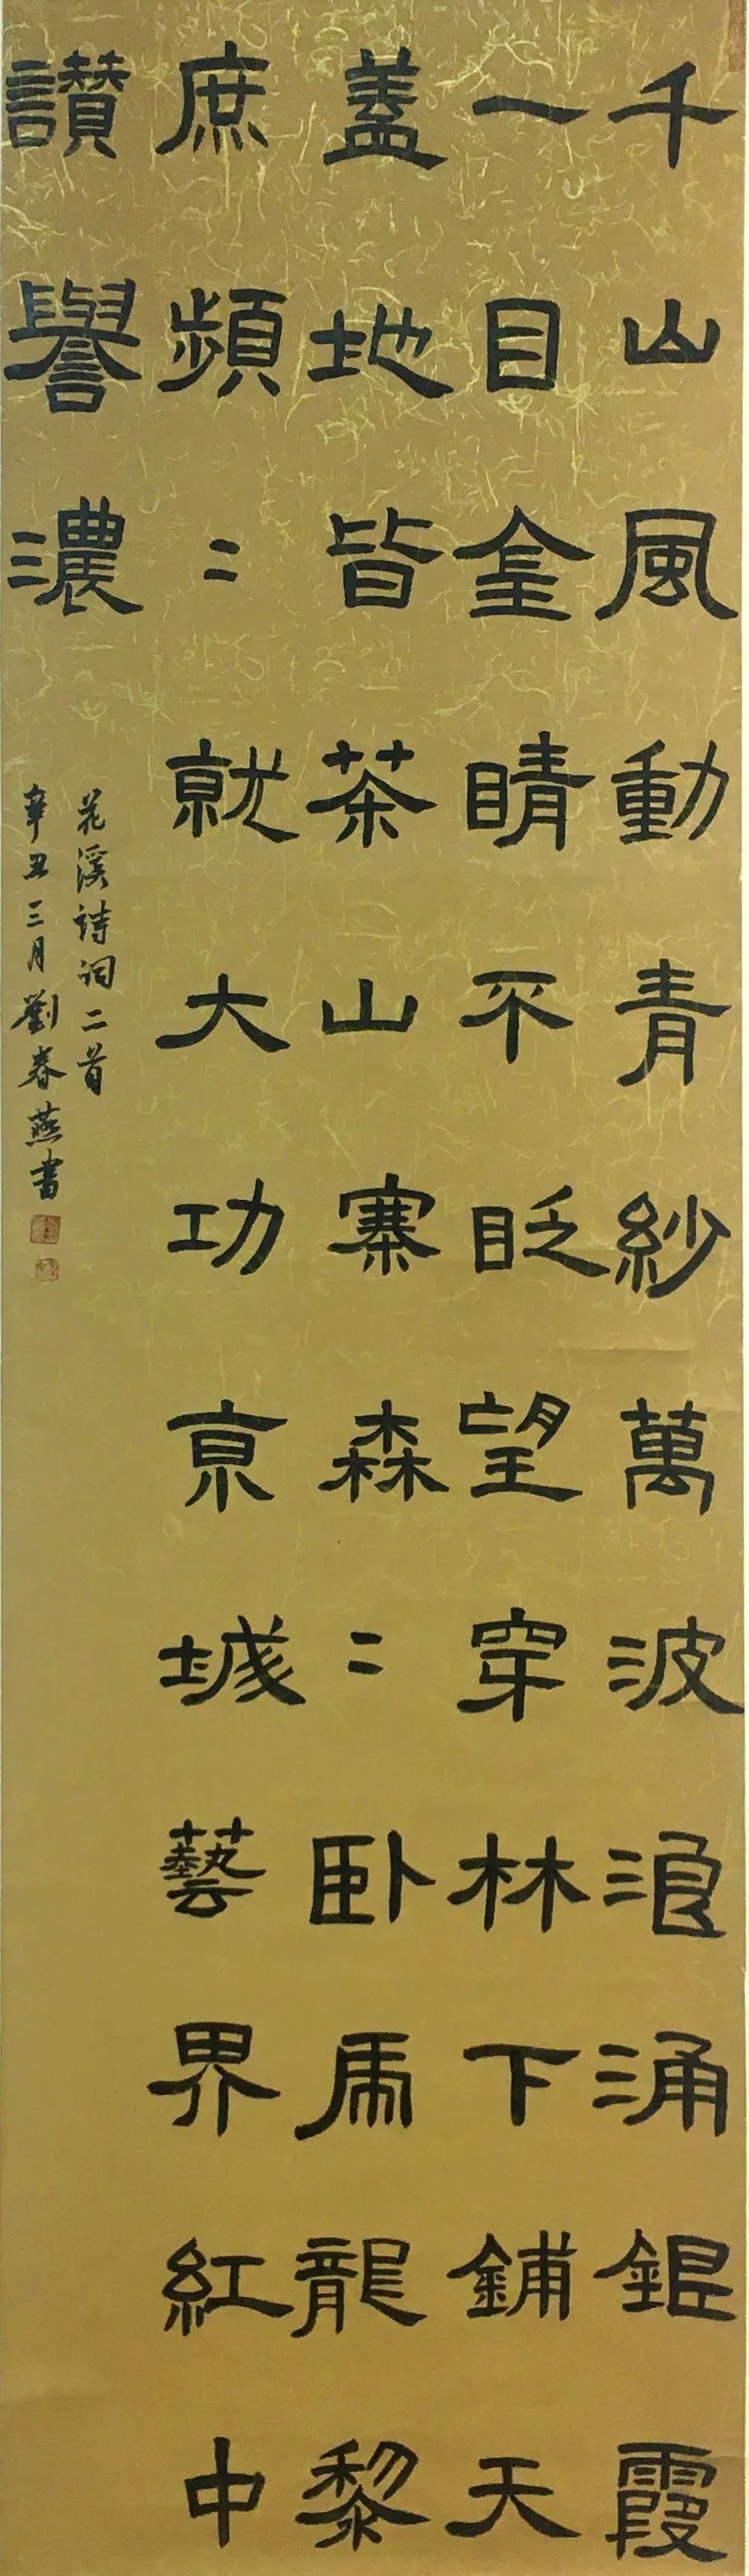 千山風動青紗萬波浪涌銀霞
一目金睛不眨望穿林下鋪天
蓋地皆茶山寨森〻卧虎龍黎
庶頻〻就大功京城藝界紅中
讚譽濃
花溪詩詞二首
辛丑三月劉春燕書